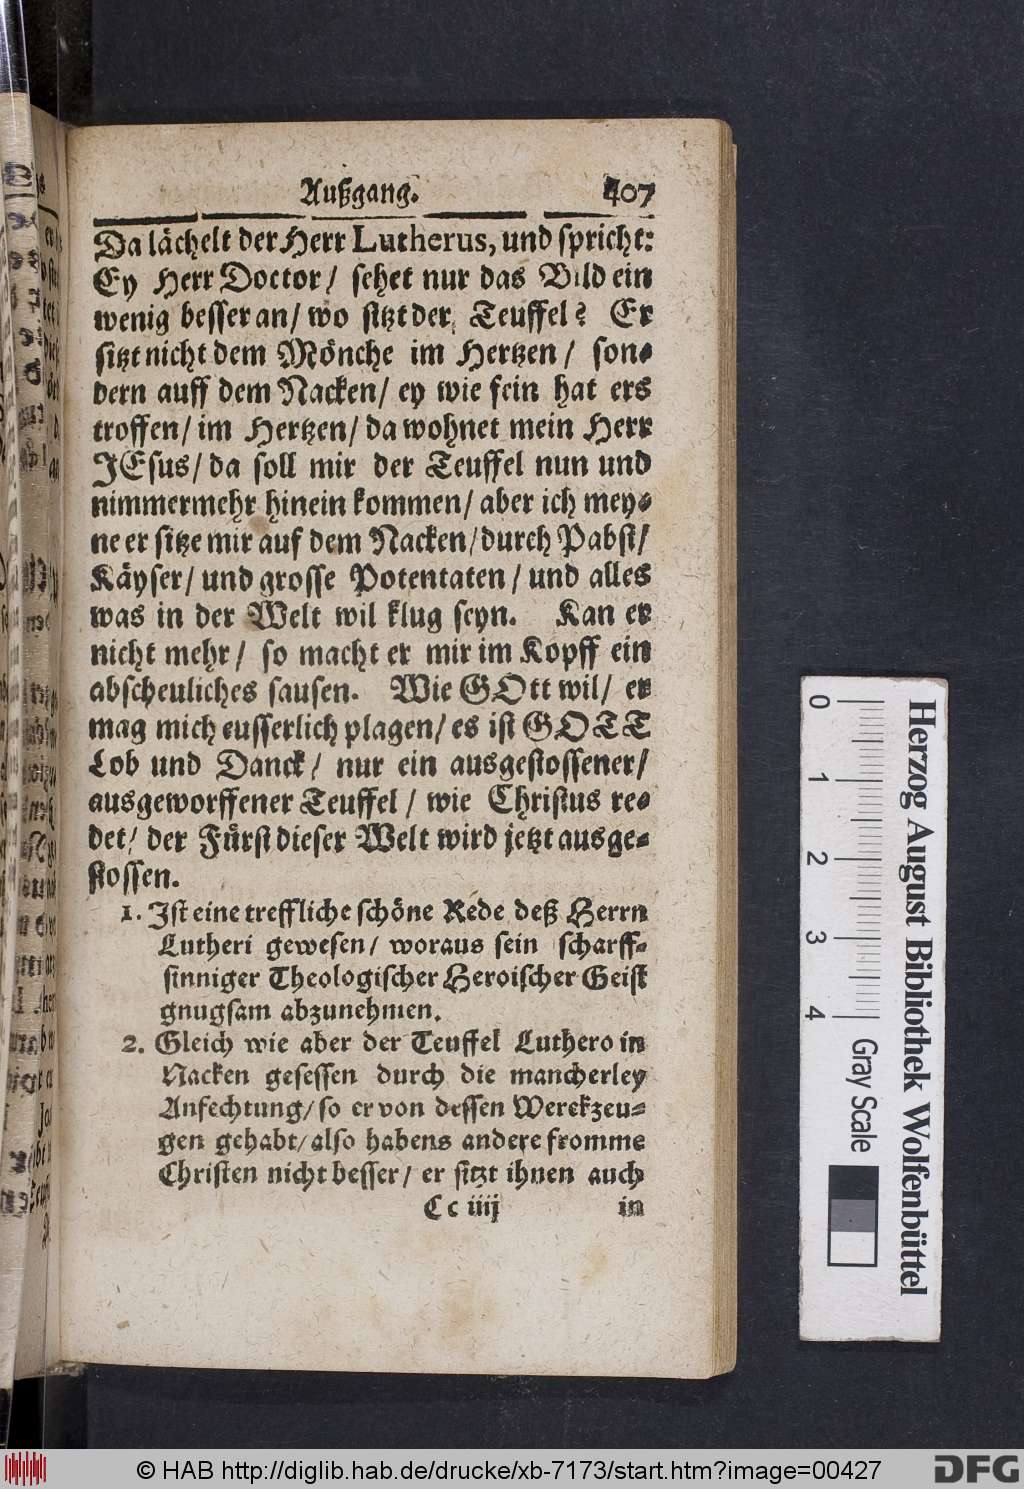 Außgang. 407
Da lächelt der Herr Lutherus, und spricht:
Ey Herr Doctor / sehet nur das Bild ein
wenig besser an / wo sitzt der Teuffel? Er
sitzt nicht dem Mönche im Hertzen / son-
dern auff dem Nacken / ey wie fein hat ers
troffen / im Hertzen / da wohnet mein Herr
JEsus / da soll mir der Teuffel nun und
nimmermehr hinein kommen / aber ich mey-
ne er sitze mir auf dem Nacken / durch Pabst /
Käyser / und grosse Potentaten / und alles
was in der Welt wil klug seyn. Kan er
nicht mehr / so macht er mir im Kopff ein
abscheuliches sausen. Wie GOtt wil / er
mag mich eusserlich plagen / es ist GOTT
Lob und Danck / nur ein ausgestossener /
ausgeworffener Teuffel / wie Christus re-
det / der Fürst dieser Welt wird jetzt ausge-
stossen.
1. Ist eine treffliche schöne Rede deß Herrn
Lutheri gewesen / woraus sein scharff-
sinniger Theologischer Heroischer Geist
gnugsam abzunehmen.
2. Gleich wie aber der Teuffel Luthero in
Nacken gesessen durch die mancherley
Anfechtung / so er von dessen Werckzeu-
gen gehabt / also habens andere fromme
Christen nicht besser / er sitzt ihnen auch
Cc iiij in
0 1 2 3 4 Gray Scale
Herzog August Bibliothek Wolfenbüttel
© HAB http://diglib.hab.de/drucke/xb-7173/start.htm?image=00427
DFG